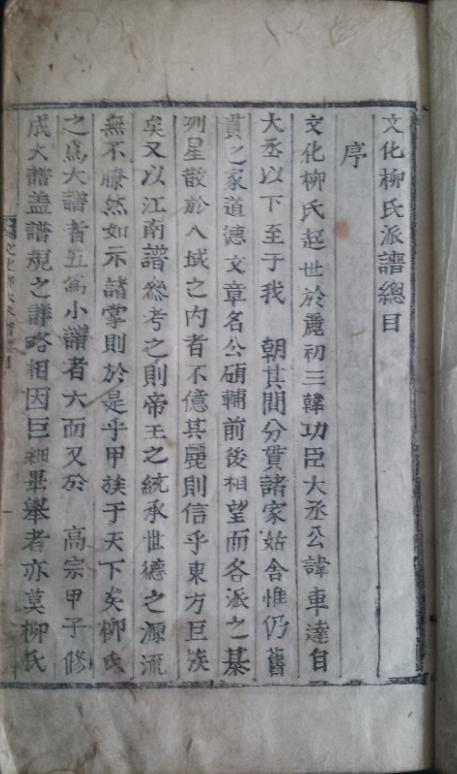 文化柳氏派譜總目
序
文化柳氏起世於麗初三韓功臣大丞公諱車達自
大丞以下至于我　朝其間分貫諸家姑舍惟仍舊
貫之家道德文章名公碩輔前後相望而各派之棊
列星散於八域之內者不億其麗則信乎東方巨族
矣又以江南譜叅考之則帝王之統承世德之源流
無不瞭然如示諸掌則於是乎甲族于天下矣柳氏
之爲大譜者五爲小譜者六而又於　高宗甲子修
成大譜盖譜規之詳略相因巨細畢舉者亦莫柳氏